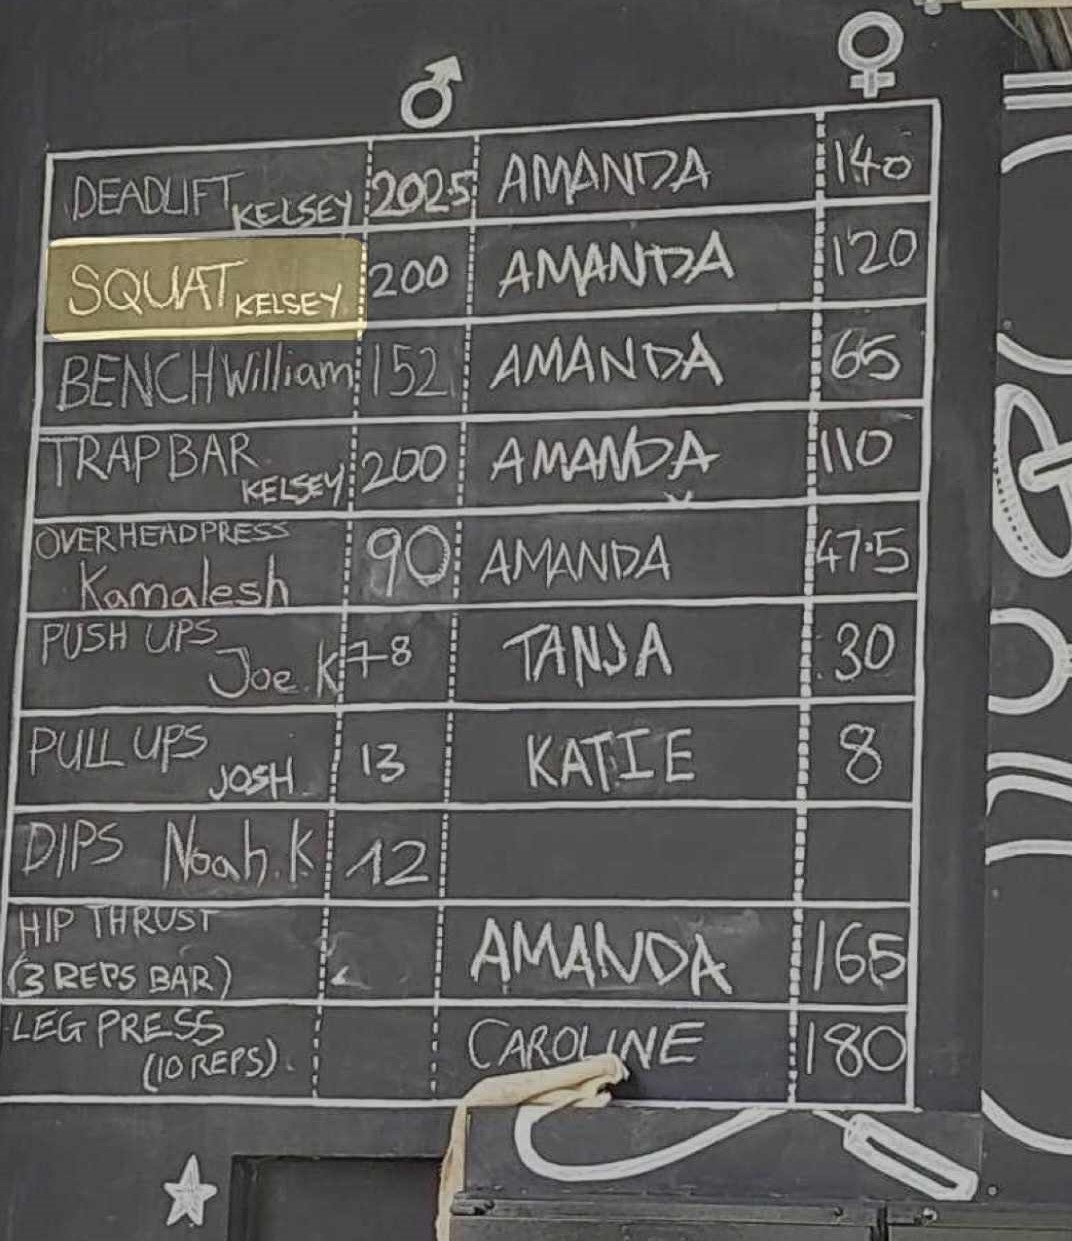 ♂ ♀
DEADLIFT KELSEY 202.5 AMANDA 140
SQUAT KELSEY 200 AMANDA 120
BENCH William 152 AMANDA 65
TRAP BAR KELSEY 200 AMANDA 110
OVERHEAD PRESS
Kamalesh 90 AMANDA 47.5
PUSH UPS
Joe.K 78 TANJA 30
PULL UPS
JOSH 13 KATIE 8
DIPS Noah.K 12
HIP THRUST
(3 REPS BAR) AMANDA 165
LEG PRESS
(10 REPS). CAROLINE 180